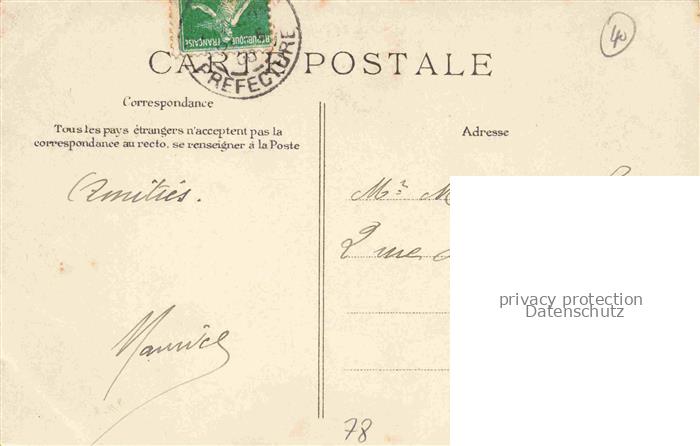 RÉPUBLIQUE FRANÇAISE
PREFECTURE
40
CARTE POSTALE
Correspondance
Tous les pays étrangers n'acceptent pas la
correspondance au recto, se renseigner à la Poste
Amitiés.
Maurice
Adresse
Mr M
2 rue
privacy protection
Datenschutz
78